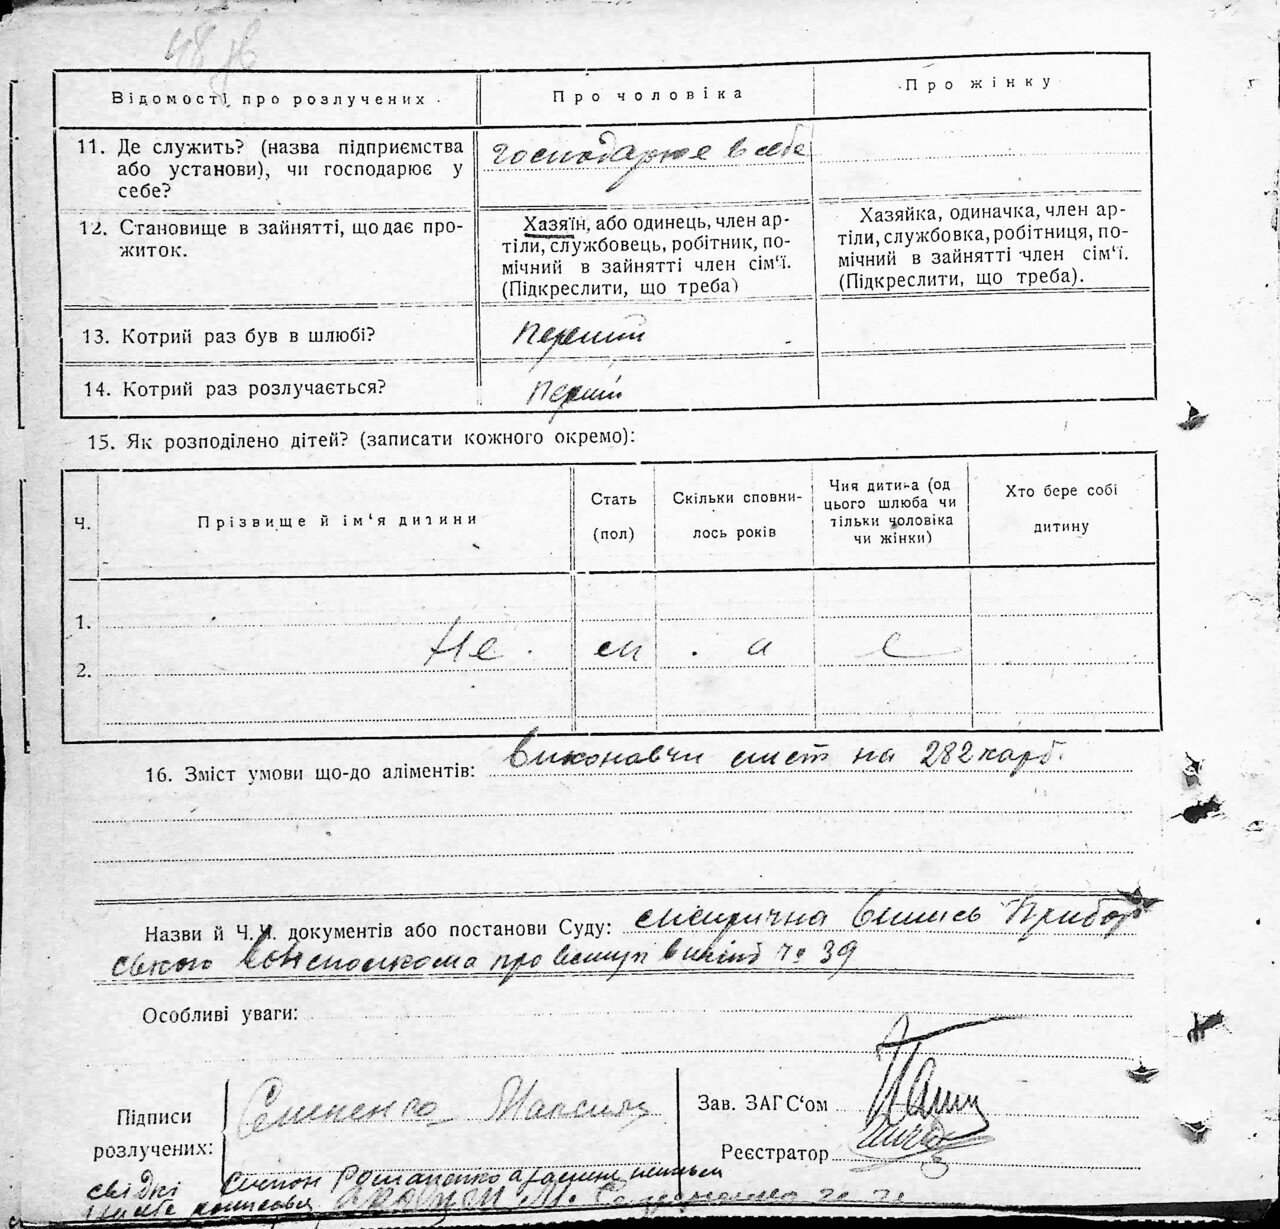 Відомості про розлучених
Про чоловіка
Про жінку
11. Де служить? (назва підприємства
або установи), чи господарює у
себе?
господарює в себе
12. Становище в зайнятті, що дає про-
житок.
Хазяїн, або одинець, член ар-
тіли, службовець, робітник, по-
мічний в зайнятті член сім'ї.
(Підкреслити, що треба)
Хазяйка, одиначка, член ар-
тіли, службовка, робітниця, по-
мічний в зайнятті член сім'ї.
(Підкреслити, що треба).
13. Котрий раз був в шлюбі?
перший
14. Котрий раз розлучається?
перший
15. Як розподілено дітей? (записати кожного окремо):
Ч.
Прізвище й ім'я дитини
Стать
(пол)
Скільки сповни-
лось років
Чия дитина (од
цього шлюба чи
тільки чоловіка
чи жінки)
Хто бере собі
дитину
1.
2.
Не м а є
16. Зміст умови що-до аліментів: виконавчи лист на 282 карб.
Назви й Ч.Ч. документів або постанови Суду: випись
про вступ в шлюб ч. 39
Особливі уваги:
Підписи
розлучених:
Зав. ЗАГС'ом
Реєстратор
свідкі